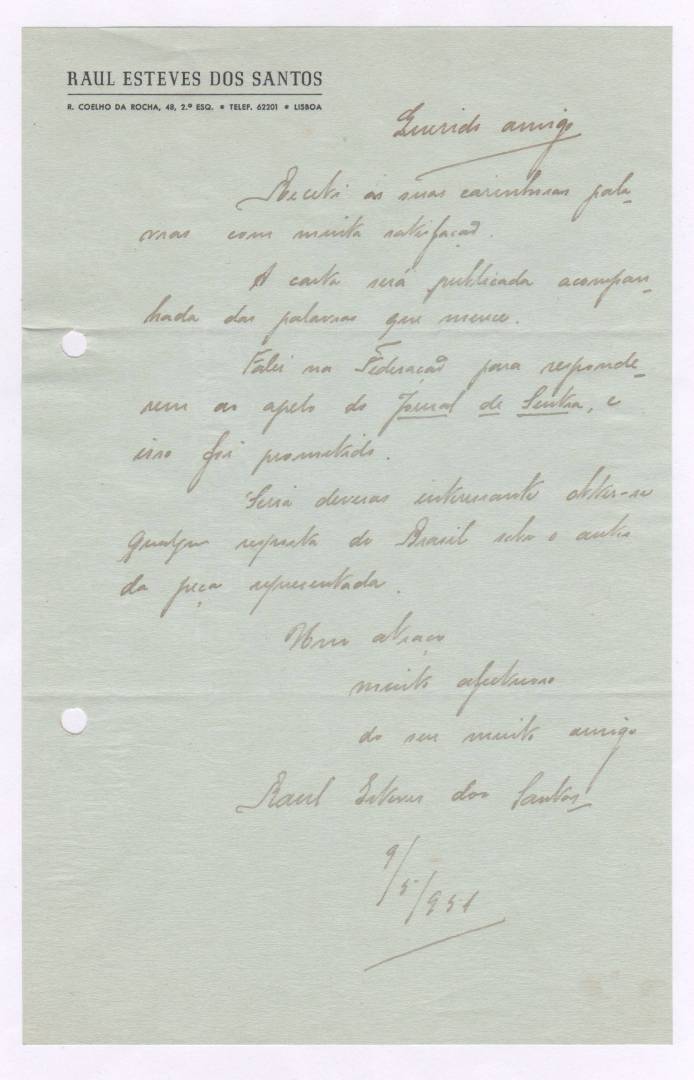 RAUL ESTEVES DOS SANTOS
R. COELHO DA ROCHA, 48, 2.º ESQ. • TELEF. 62201 • LISBOA
Querido amigo
Recebi as suas carinhosas pala-
vras com muita satisfação.
A carta será publicada acompan-
hada das palavras que merece.
Falei na Federação para responde-
rem ao apelo do Jornal de Sintra, e
isso foi prometido.
Seria deveras interessante obter-se
qualquer resposta do Brasil sobre o autor
da peça representada.
Um abraço
muito afectuoso
do seu muito amigo
Raul Esteves dos Santos
9/5/951